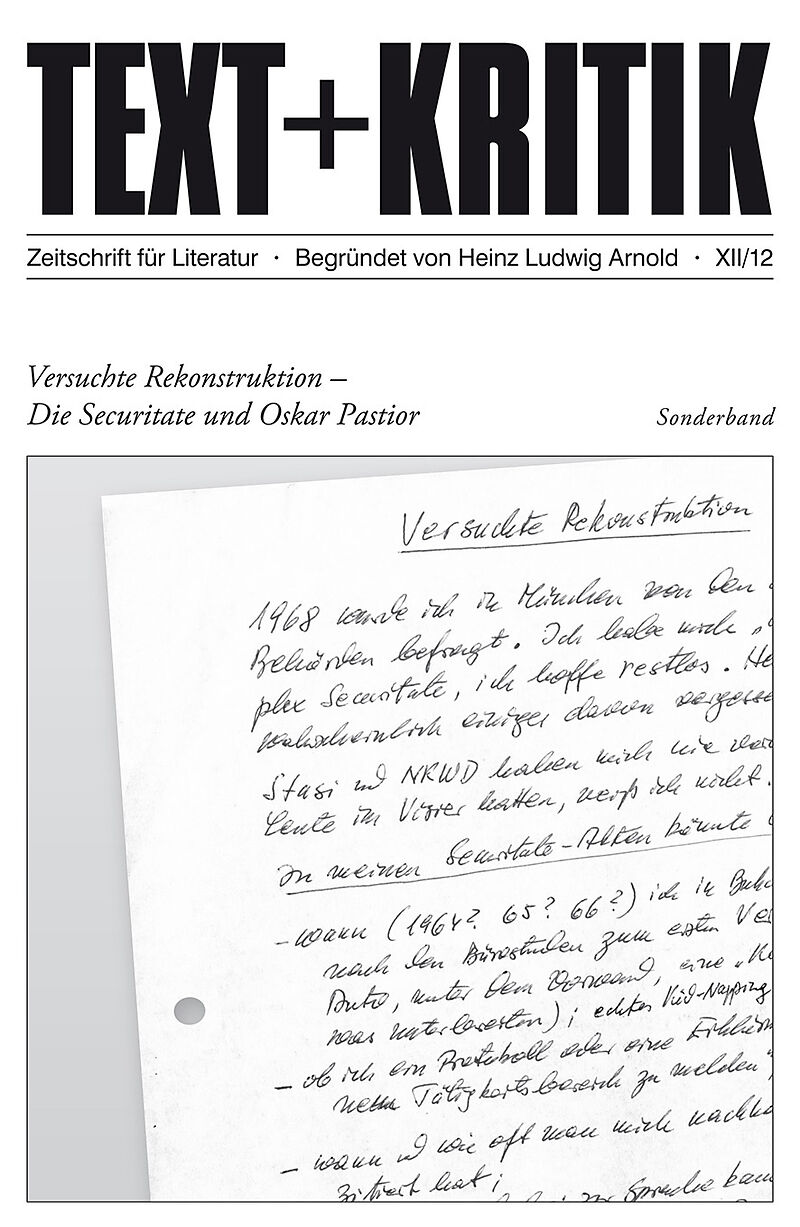 TEXT+KRITIK
Zeitschrift für Literatur · Begründet von Heinz Ludwig Arnold · XII/12
Versuchte Rekonstruktion –
Die Securitate und Oskar Pastior
Sonderband
Versuchte Rekonstruktion
1968 wurde ich in München von den
Behörden befragt. Ich habe mich „
plex Securitate, ich hoffe restlos. He
wahrscheinlich einiges davon vergesse
Stasi und NKWD haben mich nie
Leute im Visier hatten, weiß ich nicht.
In meinen Securitate-Akten könnte
– wann (1964? 65? 66?) ich in Buka
nach den Bürostunden zum ersten Ve
Auto, unter dem Vorwand, eine „K
was unterbreiten); echtes Kid-Napping
– ob ich ein Protokoll oder eine Erklär
nem Tätigkeitsbereich zu melden“,
– wann und wie oft man mich nachh
zitiert hat;
zur Sprache kam